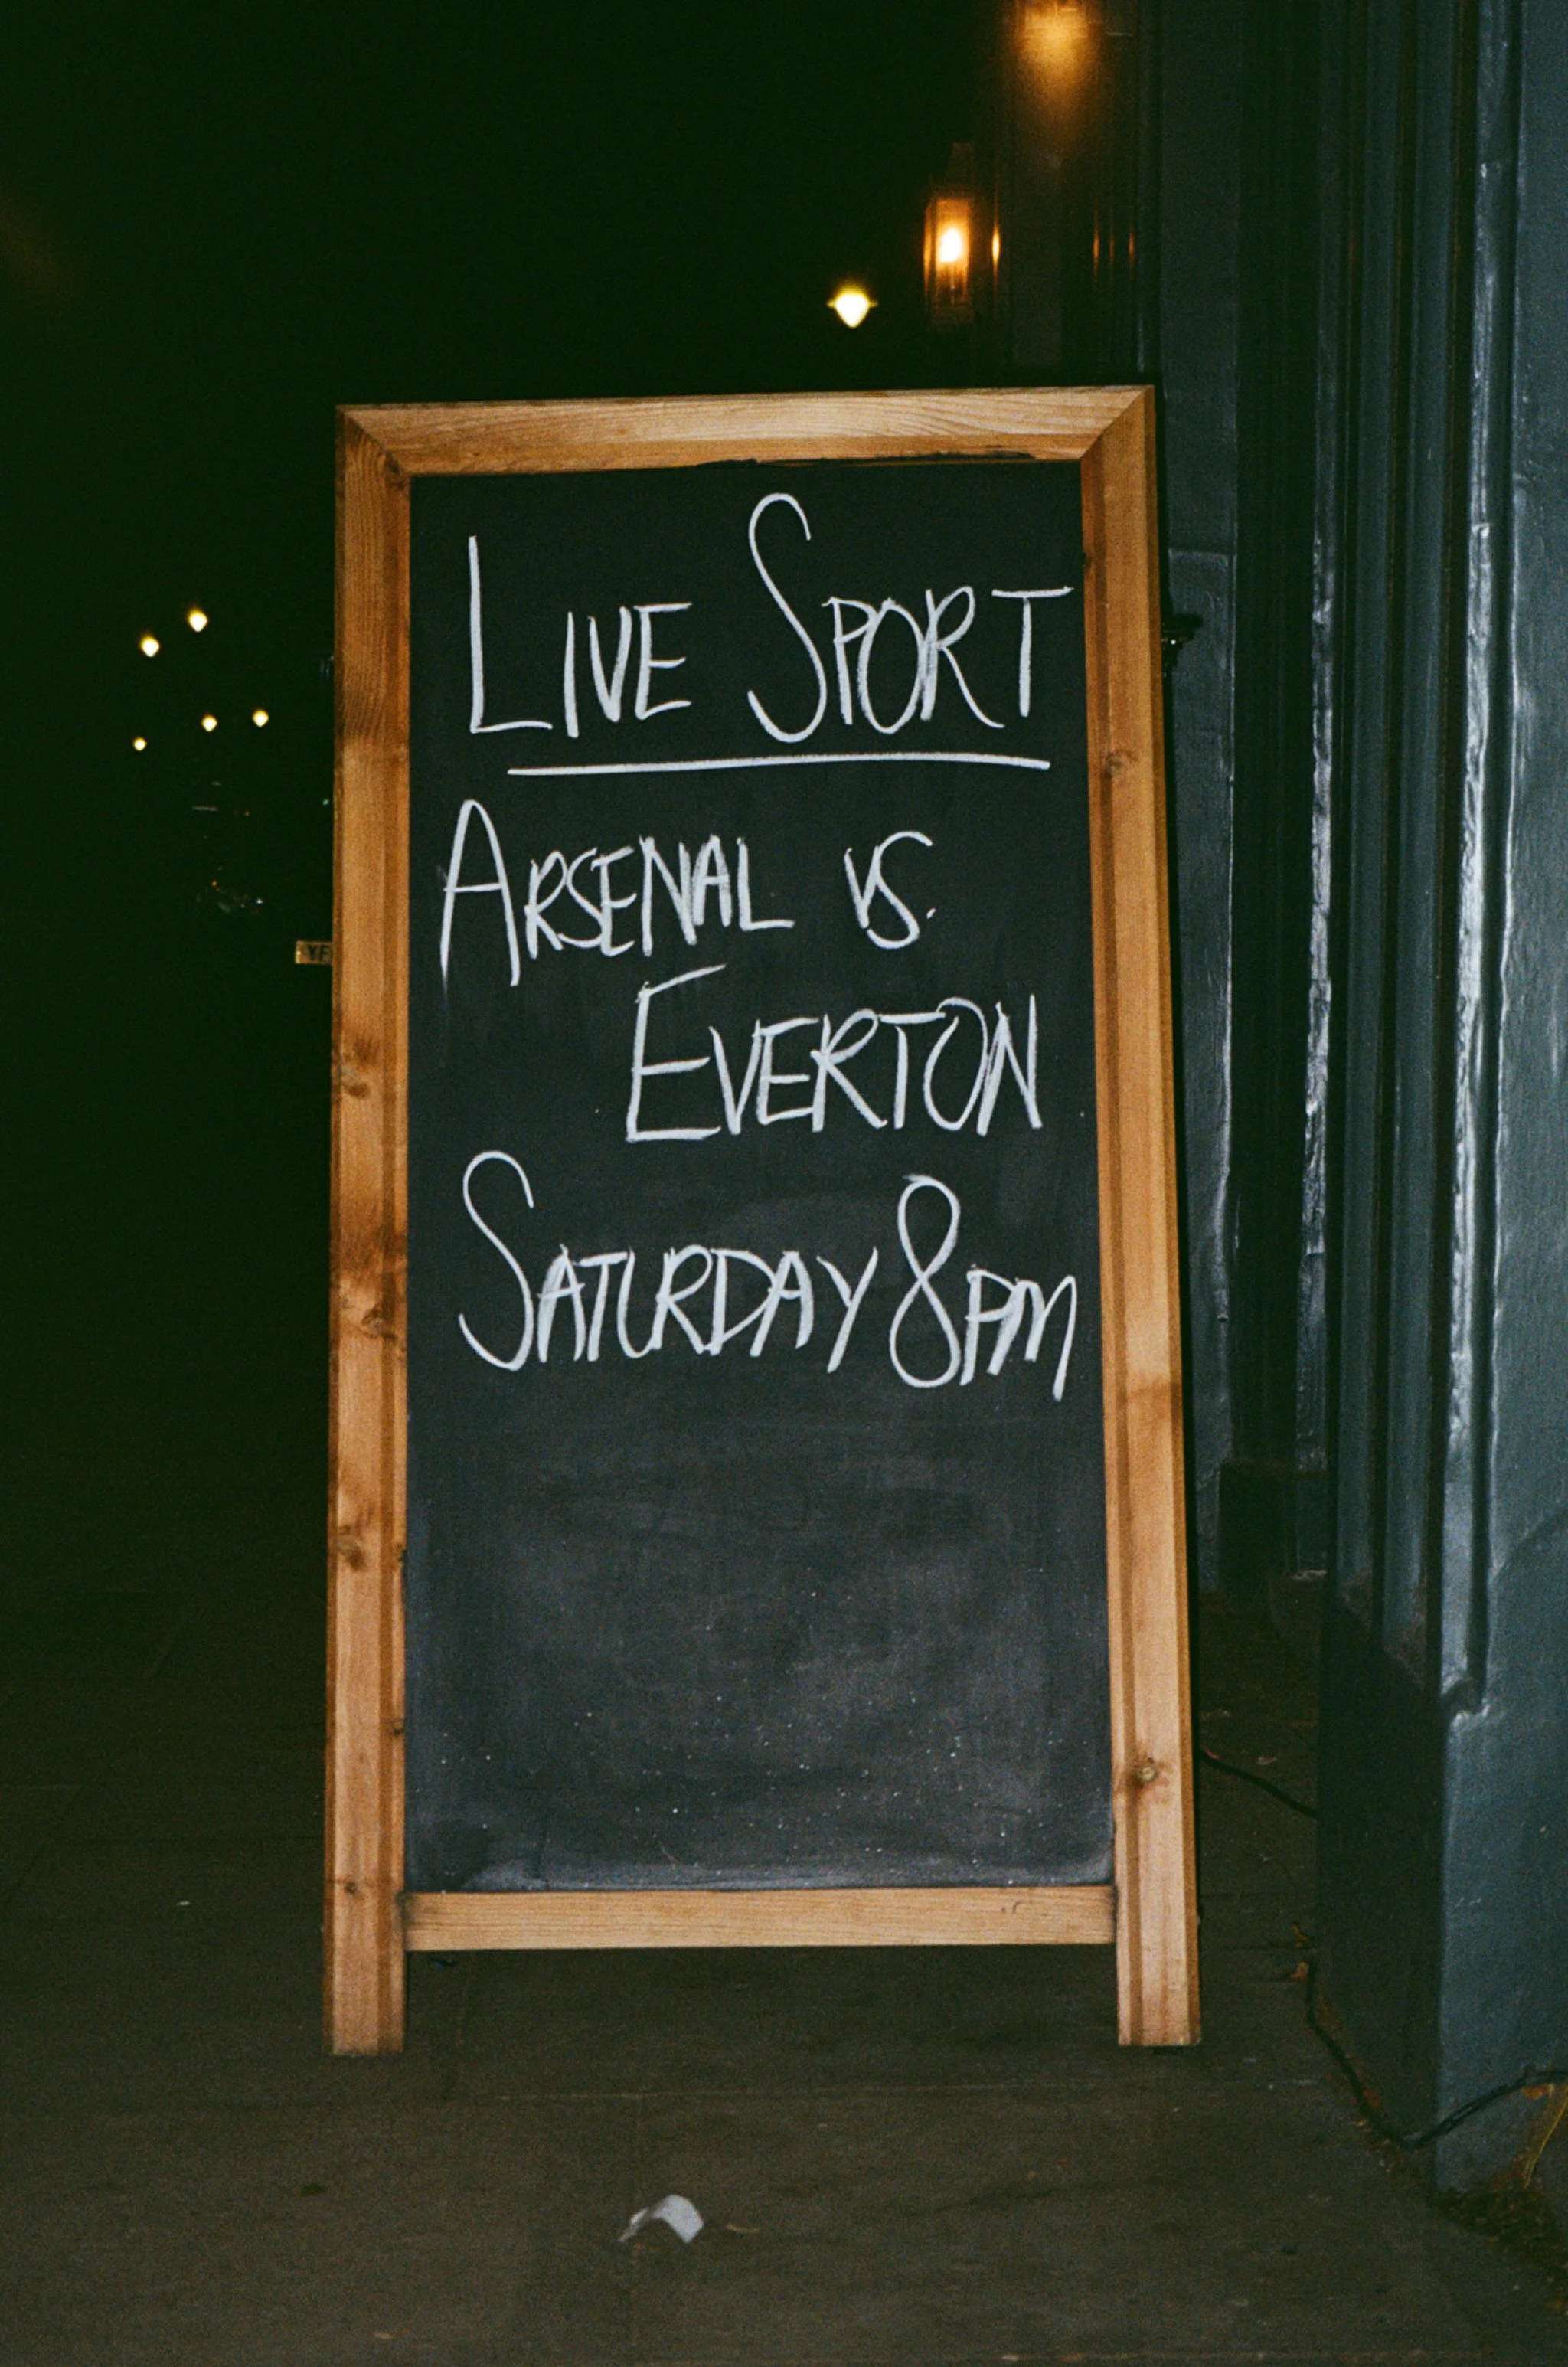 LIVE SPORT
ARSENAL VS.
EVERTON
SATURDAY 8PM
YF